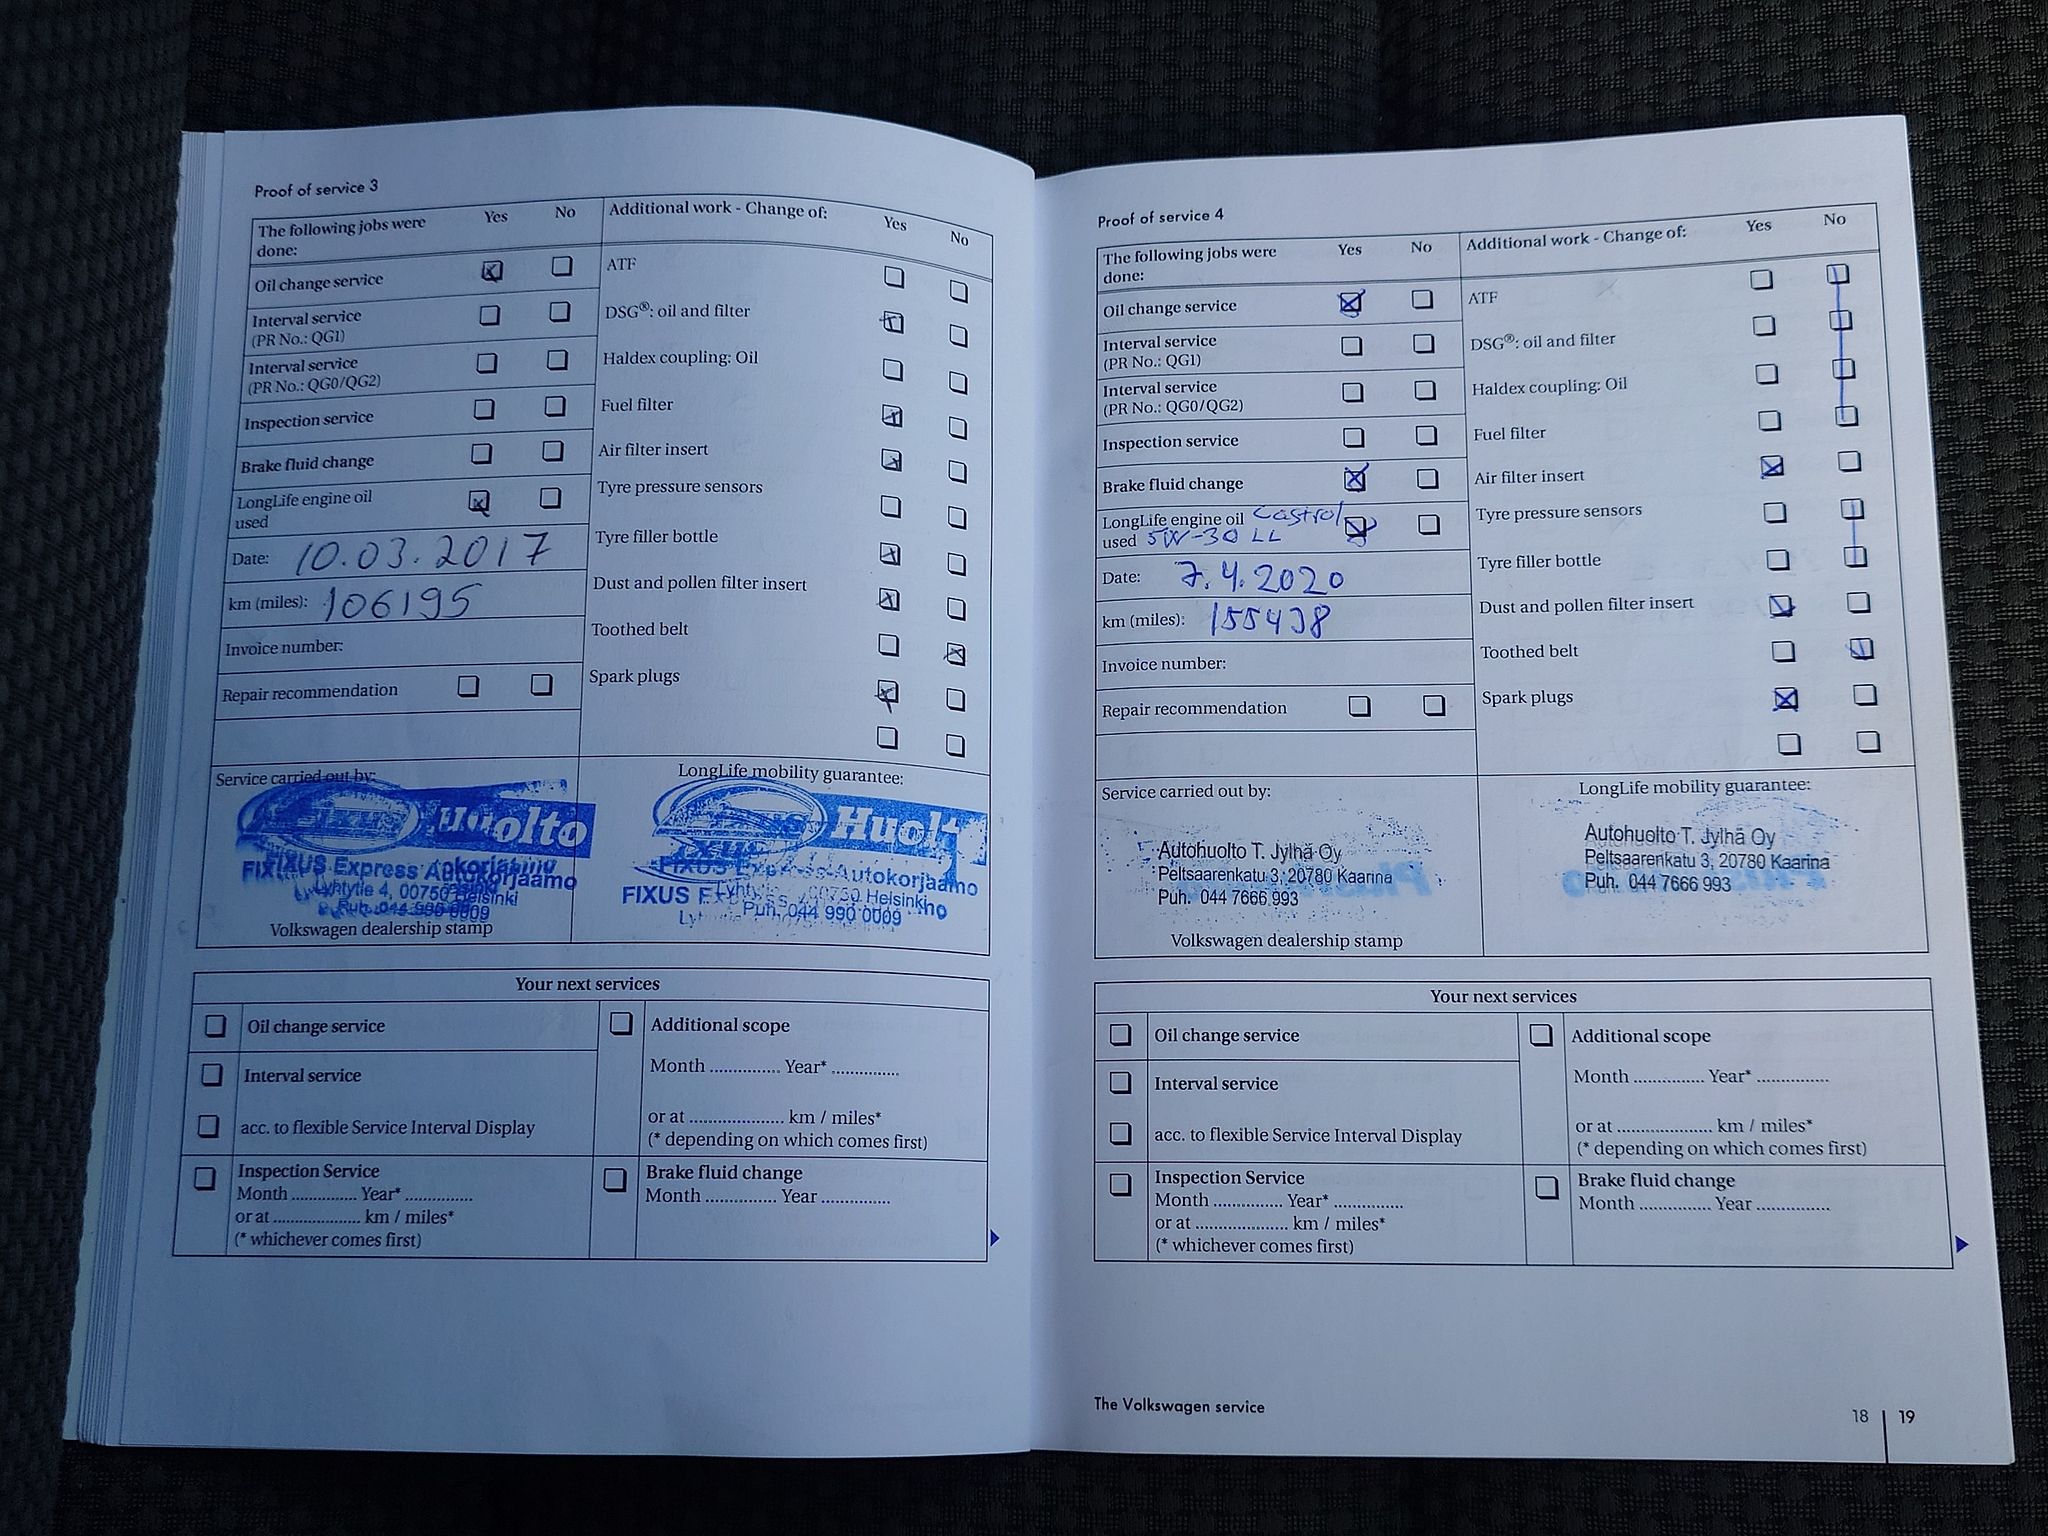 Proof of service 3
The following jobs were done: Yes No
Oil change service
Interval service
(PR No.: QG1)
Interval service
(PR No.: QG0/QG2)
Inspection service
Brake fluid change
LongLife engine oil
used
Date: 10.03.2017
km (miles): 106195
Invoice number:
Repair recommendation
Additional work - Change of: Yes No
ATF
DSG®: oil and filter
Haldex coupling: Oil
Fuel filter
Air filter insert
Tyre pressure sensors
Tyre filler bottle
Dust and pollen filter insert
Toothed belt
Spark plugs
Service carried out by:
Huolto
FIXUS Express Autokorjaamo
Lyhtytie 4, 00750 Helsinki
Puh. 044 990 0009
Volkswagen dealership stamp
LongLife mobility guarantee:
FIXUS Express Autokorjaamo
00750 Helsinki
Puh. 044 990 0009
Your next services
Oil change service
Interval service
acc. to flexible Service Interval Display
Inspection Service
Month ............... Year* ...............
or at ..................... km / miles*
(* whichever comes first)
Additional scope
Month ............... Year* ...............
or at ..................... km / miles*
(* depending on which comes first)
Brake fluid change
Month ............... Year ...............
Proof of service 4
The following jobs were done: Yes No
Oil change service
Interval service
(PR No.: QG1)
Interval service
(PR No.: QG0/QG2)
Inspection service
Brake fluid change
LongLife engine oil Castrol
used 5W-30 LL
Date: 7.4.2020
km (miles): 155438
Invoice number:
Repair recommendation
Additional work - Change of: Yes No
ATF
DSG®: oil and filter
Haldex coupling: Oil
Fuel filter
Air filter insert
Tyre pressure sensors
Tyre filler bottle
Dust and pollen filter insert
Toothed belt
Spark plugs
Service carried out by:
Autohuolto T. Jylhä Oy
Peltsaarenkatu 3, 20780 Kaarina
Puh. 044 7666 993
Volkswagen dealership stamp
LongLife mobility guarantee:
Autohuolto T. Jylhä Oy
Peltsaarenkatu 3, 20780 Kaarina
Puh. 044 7666 993
Your next services
Oil change service
Interval service
acc. to flexible Service Interval Display
Inspection Service
Month ............... Year* ...............
or at ..................... km / miles*
(* whichever comes first)
Additional scope
Month ............... Year* ...............
or at ..................... km / miles*
(* depending on which comes first)
Brake fluid change
Month ............... Year ...............
The Volkswagen service
18 | 19